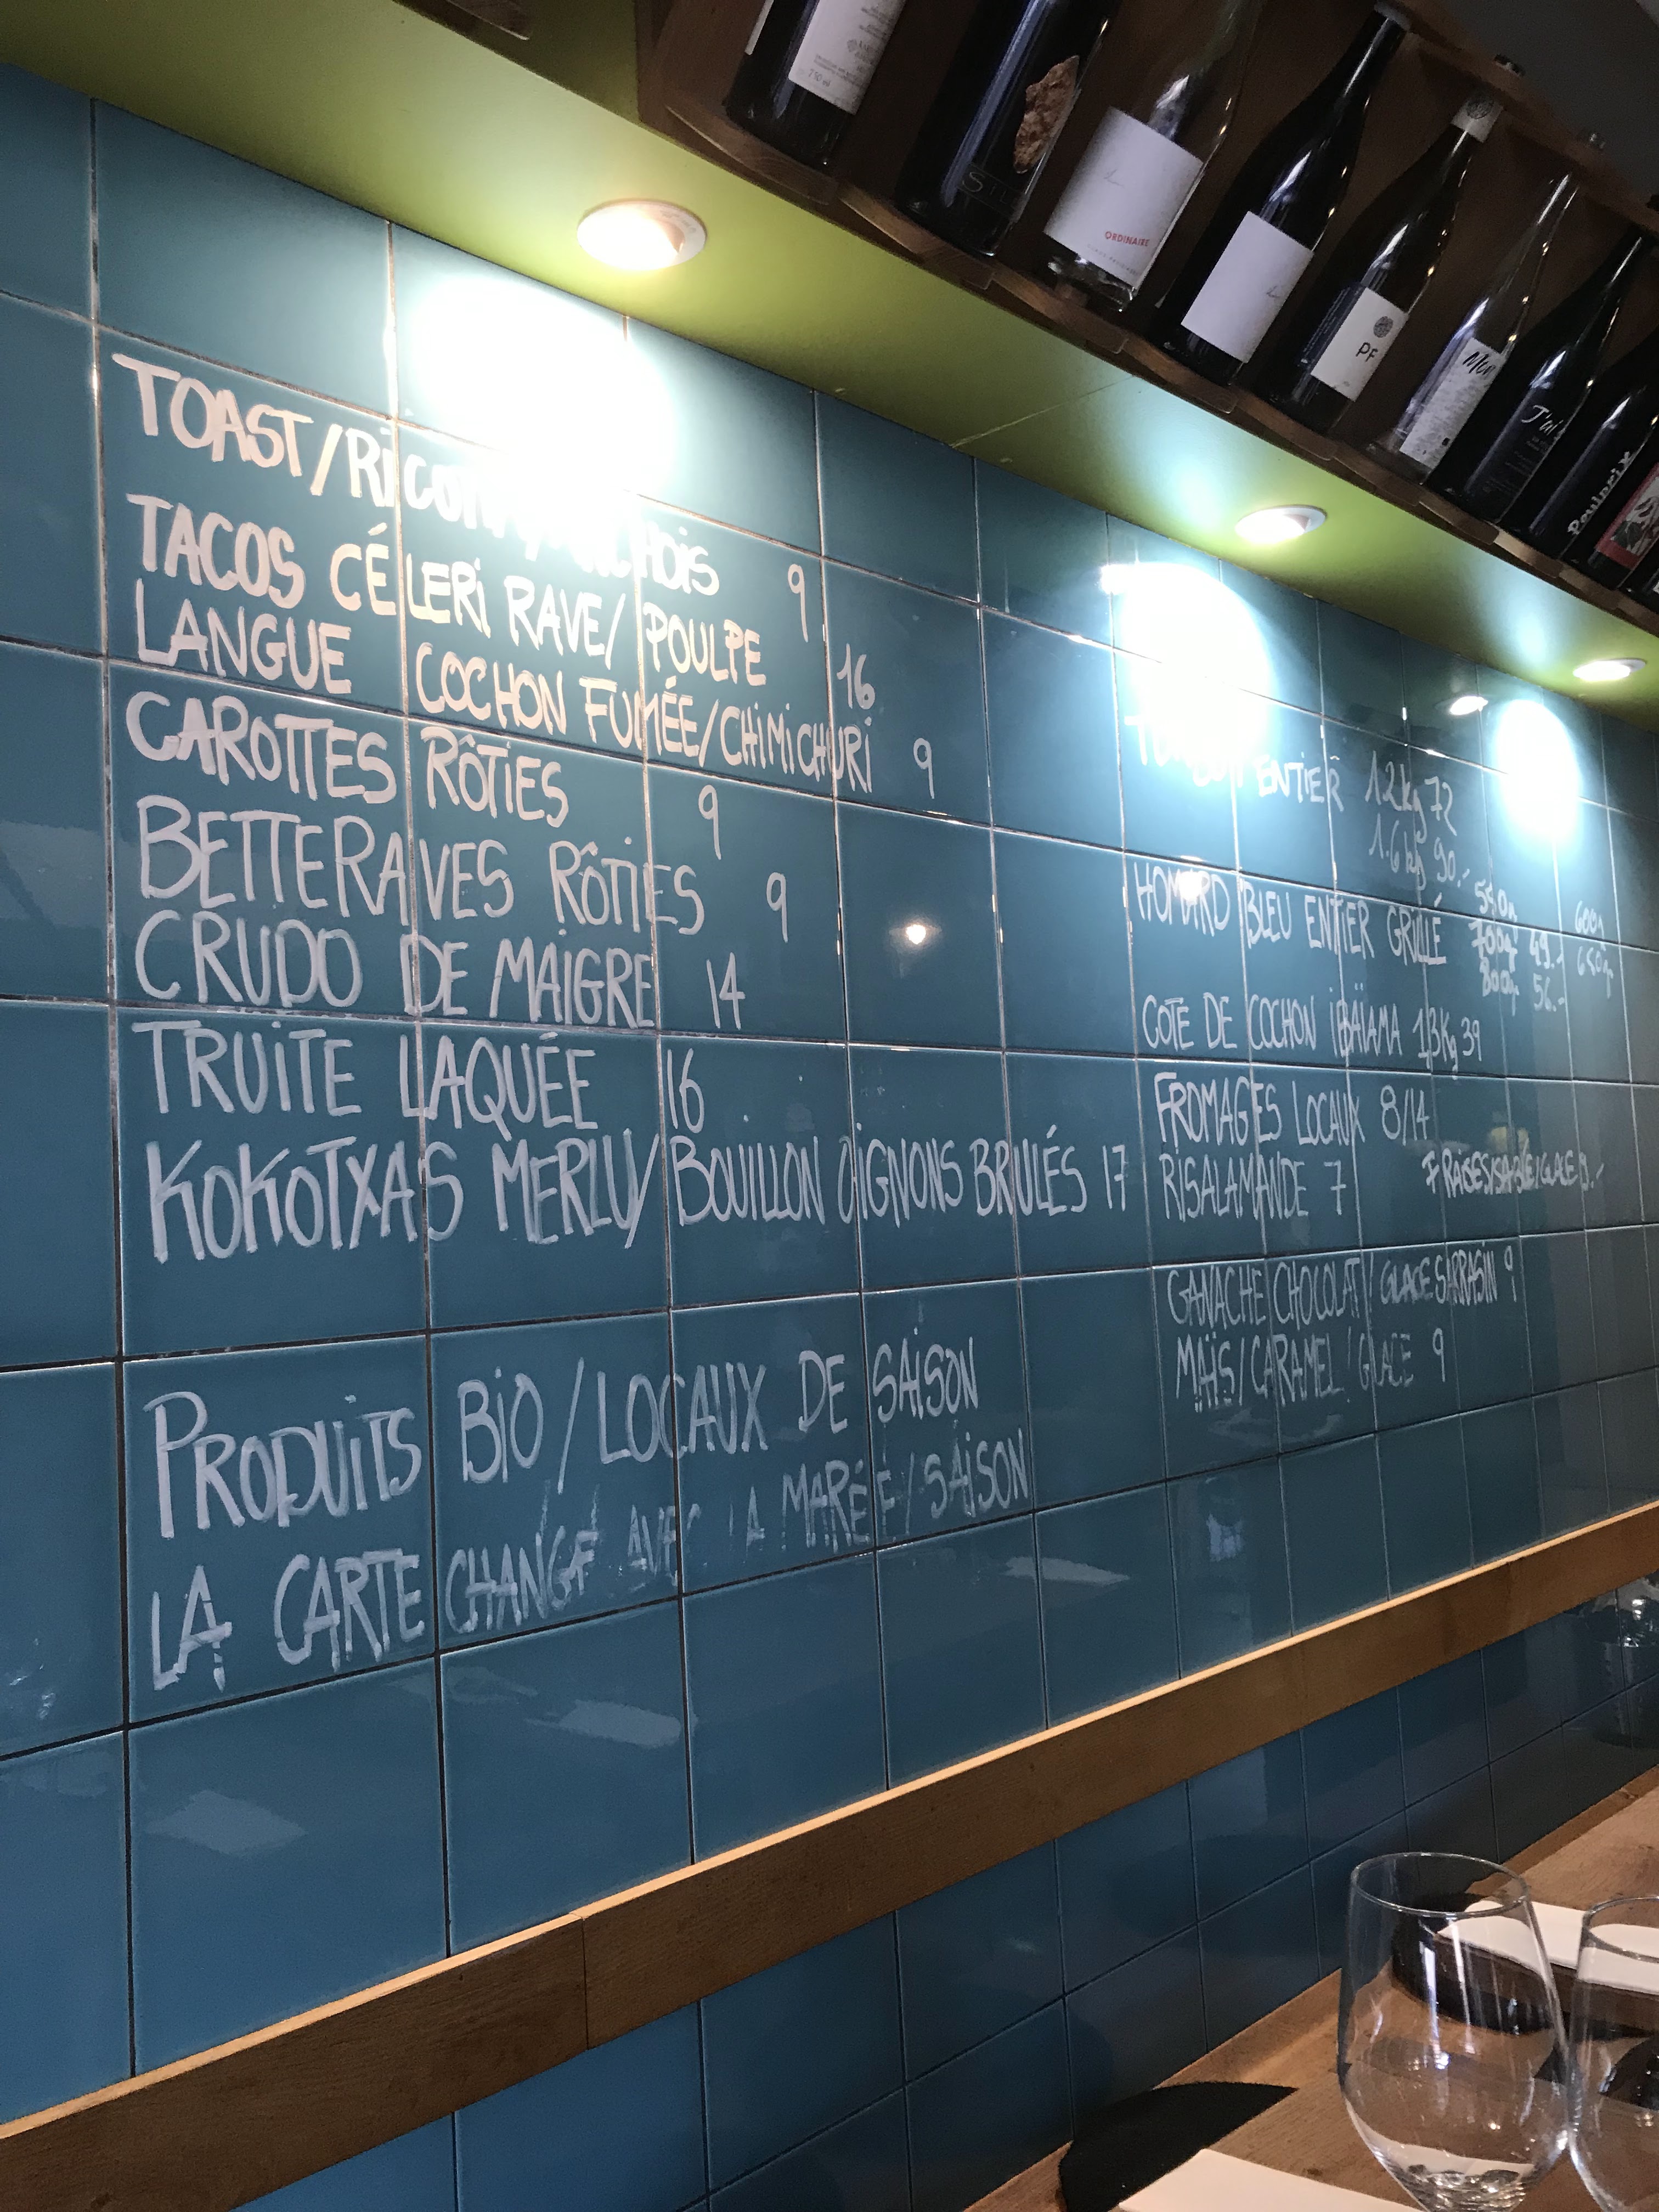 ORDINAIRE
PF
J'ai
TOAST/RICOTTA
9
TACOS CÉLERI RAVE/ POULPE 16
LANGUE COCHON FUMÉE/CHIMICHURI 9
CAROTTES RÔTIES 9
BETTERAVES RÔTIES 9
CRUDO DE MAIGRE 14
TRUITE LAQUÉE 16
KOKOTXAS MERLU/BOUILLON OIGNONS BRULÉS 17
PRODUITS BIO/LOCAUX DE SAISON
LA CARTE CHANGE AVEC LA MARÉE/SAISON
ENTIER 1.2kg 72
1.6kg 90.-
HOMARD BLEU ENTIER GRILLÉ
700g 49.-
800g 56.-
COTE DE COCHON IBAÏAMA 1.3Kg 39
FROMAGES LOCAUX 8/14
RISALAMANDE 7
FRAISES/SABLE/GLACE 9.-
GANACHE CHOCOLAT/GLACE SARRASIN 9
MAÏS/CARAMEL/GLACE 9